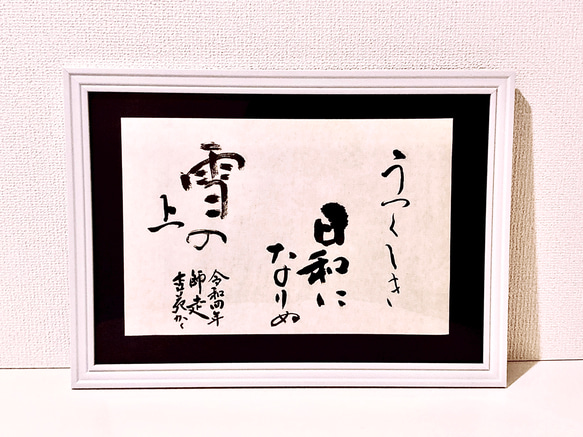 うつくしき
日和に
なりぬ
雪の
上
令和四年
師走